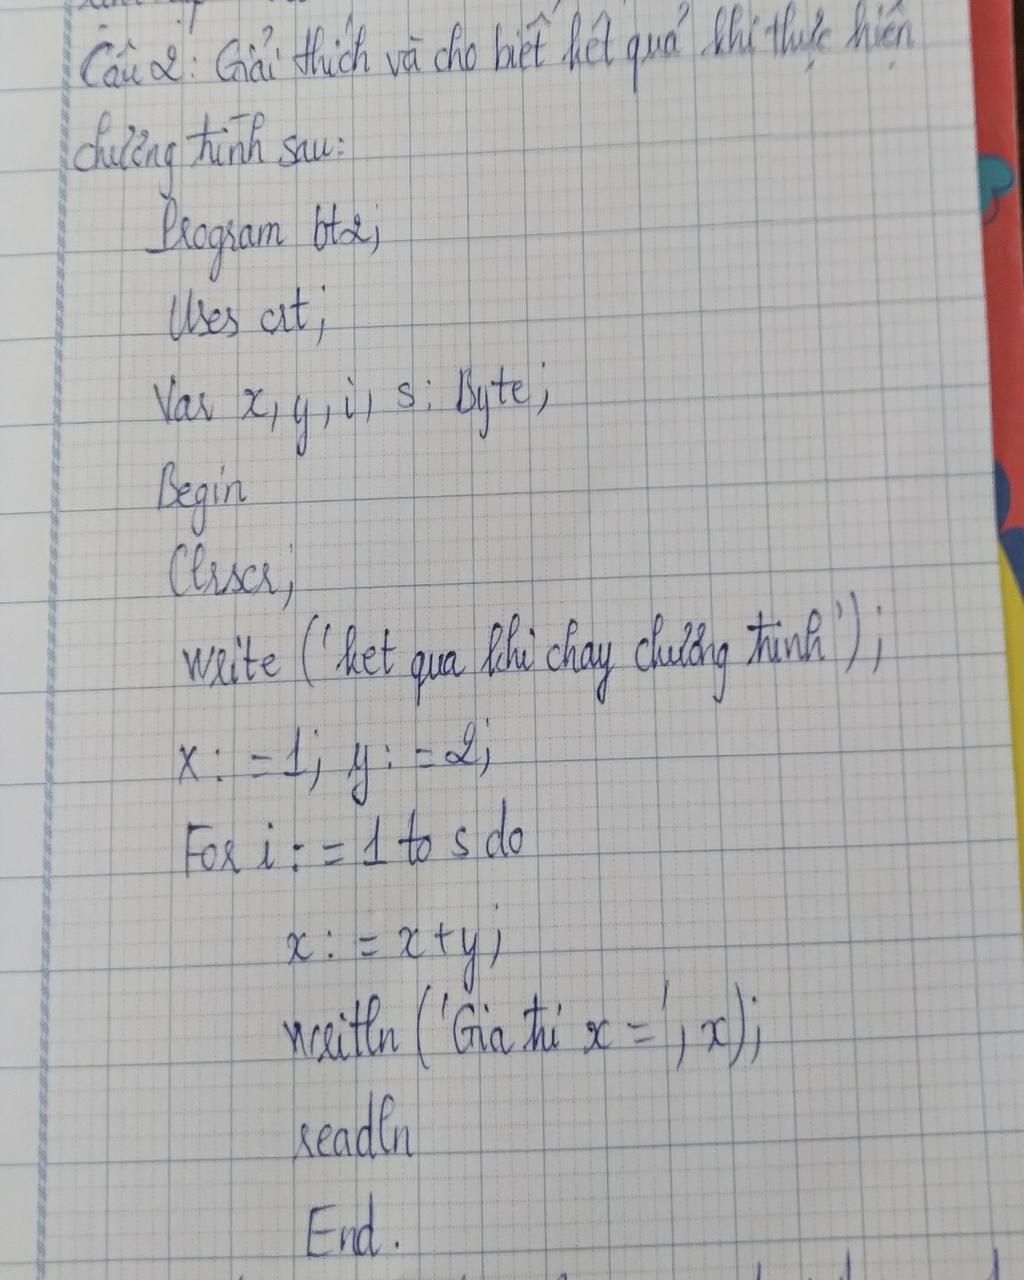 Câu 2: Giải thích và cho biết kết quả khi thực hiện
chương trình sau:
Program bt2;
Uses crt;
Var x, y, i, s: Byte;
Begin
Clrscr;
write ('ket qua khi chay chương trinh');
x: =1; y: =2;
For i: = 1 to s do
x: = x+y;
writeln ('Gia tri x =', x);
readln
End.